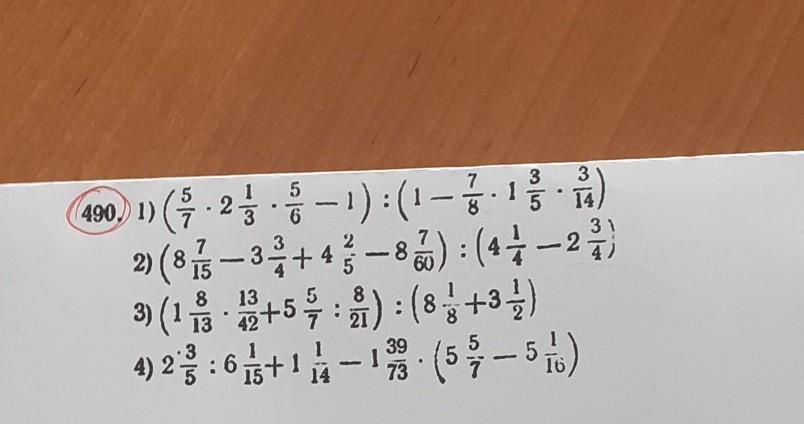 490. 1) (5/7 · 2 1/3 · 5/6 − 1) : (1 − 7/8 · 1 3/5 · 3/14)
2) (8 7/15 − 3 3/4 + 4 2/5 − 8 7/60) : (4 1/4 − 2 3/4)
3) (1 8/13 · 13/42 + 5 5/7 : 8/21) : (8 1/8 + 3 1/2)
4) 2 3/5 : 6 1/15 + 1 1/14 − 1 39/73 · (5 5/7 − 5 1/16)